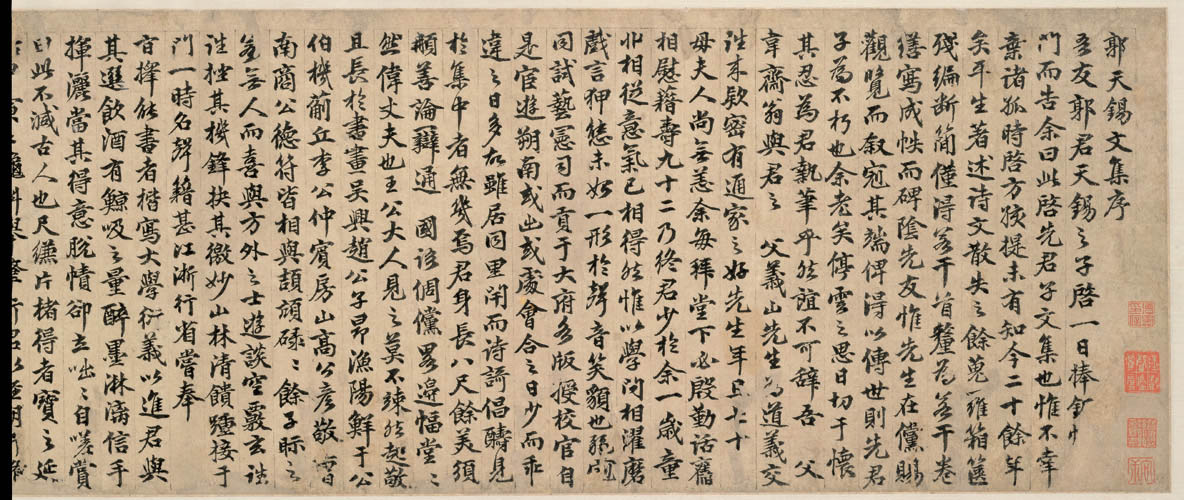 郭天錫文集序
吾友郭君天錫之子啓一日捧
門而告余曰此啓先君子文集也惟不幸
棄諸孤時啓方孩提未有知今二十餘年
矣平生著述詩文散失之餘蒐羅箱篋
殘編斷簡僅得若干首釐為若干卷
繕寫成帙而碑陰先友惟先生在儻賜
觀覽而叙冠其端俾得以傳世則先君
子為不朽也余老矣停雲之思日切于懷
其忍為君執筆乎然誼不可辭吾父
韋齋翁與君之父義山先生為道義交
詩末欵密有通家之好先生年且七十
母夫人尚無恙余每拜堂下必殷勤話舊
相慰藉壽九十二乃終君少於余一歲童
丱相從意氣已相得然惟以學問相濯磨
戲言狎態未始一形於聲音笑貌也
同試藝憲司而貢于大府多版授校官自
是宦遊朔南或出或處會合之日少而乖
違之日多故雖居同里閈而詩謌倡酬見
於集中者無幾焉君身長八尺餘美須
髯善論辯通國語倜儻畧邊幅堂々
然偉丈夫也王公大人見之莫不竦然起敬
且長於書畫吳興趙公子昂漁陽鮮于公
伯機薊丘李公仲賓房山高公彦敬
南商公德符皆相與頡頏碌々餘子眎之
若無人而喜與方外之士遊談空覈玄
詆挫其機鋒抉其微妙山林清饋踵接于
門一時名聲籍甚江浙行省嘗奉
旨擇能書者楷寫大學衍義以進君與
其選飲酒有鯨吸之量醉墨淋漓信手
揮灑當其得意脫幘卻立咄々自嗟賞
曰此不減古人也尺縑片楮得者寶之延